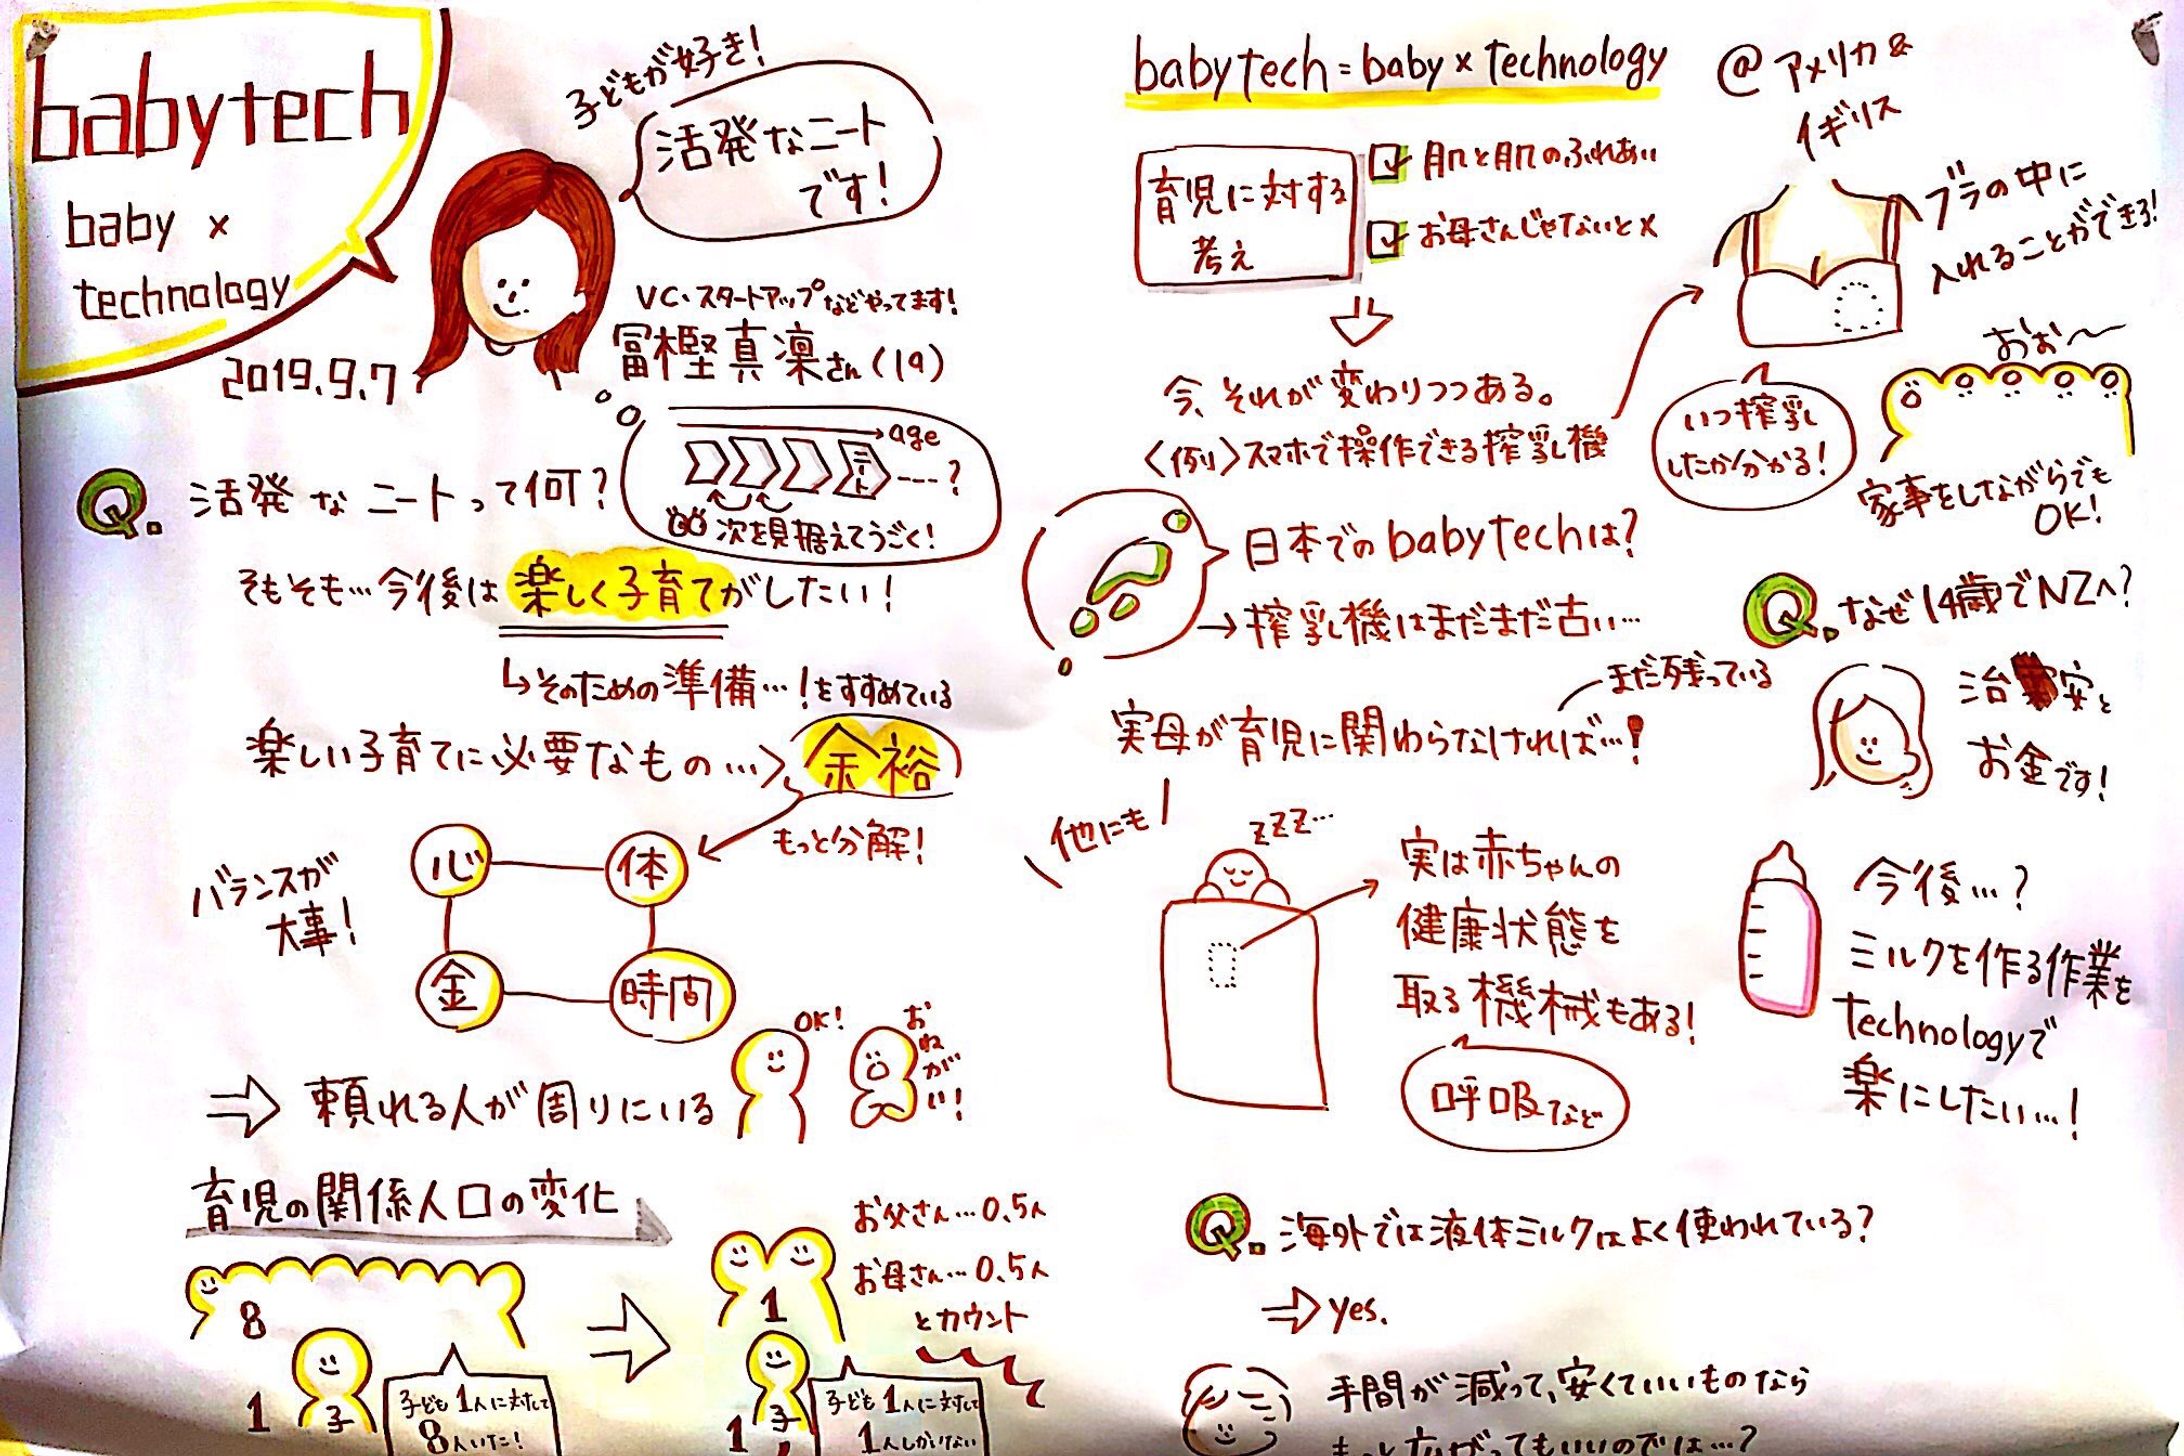 babytech
baby ×
technology
2019.9.7
子どもが好き!
活発なニート
です!
VC・スタートアップなどやってます!
冨樫真凜さん(19)
age
ニート
---?
次を見据えてうごく!
Q. 活発なニートって何?
そもそも…今後は楽しく子育てがしたい!
↳そのための準備…!をすすめている
楽しい子育てに必要なもの…> 余裕
もっと分解!
バランスが
大事!
心
体
金
時間
⇒ 頼れる人が周りにいる
OK!
おねがい!
育児の関係人口の変化
8
1
子
子ども1人に対して
8人いた!
⇒
1
お父さん…0.5人
お母さん…0.5人
とカウント
1
子
子ども1人に対して
1人しかいない
babytech = baby × technology
育児に対する
考え
☑ 肌と肌のふれあい
☑ お母さんじゃないと×
今、それが変わりつつある。
<例>スマホで操作できる搾乳機
@アメリカ&
イギリス
ブラの中に
入れることができる!
いつ搾乳
したか分かる!
おぉ〜
家事をしながらでも
OK!
日本でのbabytechは?
→搾乳機はまだまだ古い…
まだ残っている
実母が育児に関わらなければ…!
他にも
zzz…
実は赤ちゃんの
健康状態を
取る機械もある!
呼吸など
Q. なぜ14歳でNZへ?
治安と
お金です!
今後…?
ミルクを作る作業を
technologyで
楽にしたい…!
Q. 海外では液体ミルクはよく使われている?
⇒ yes.
手間が減って、安くていいものなら
もっと広がってもいいのでは…?